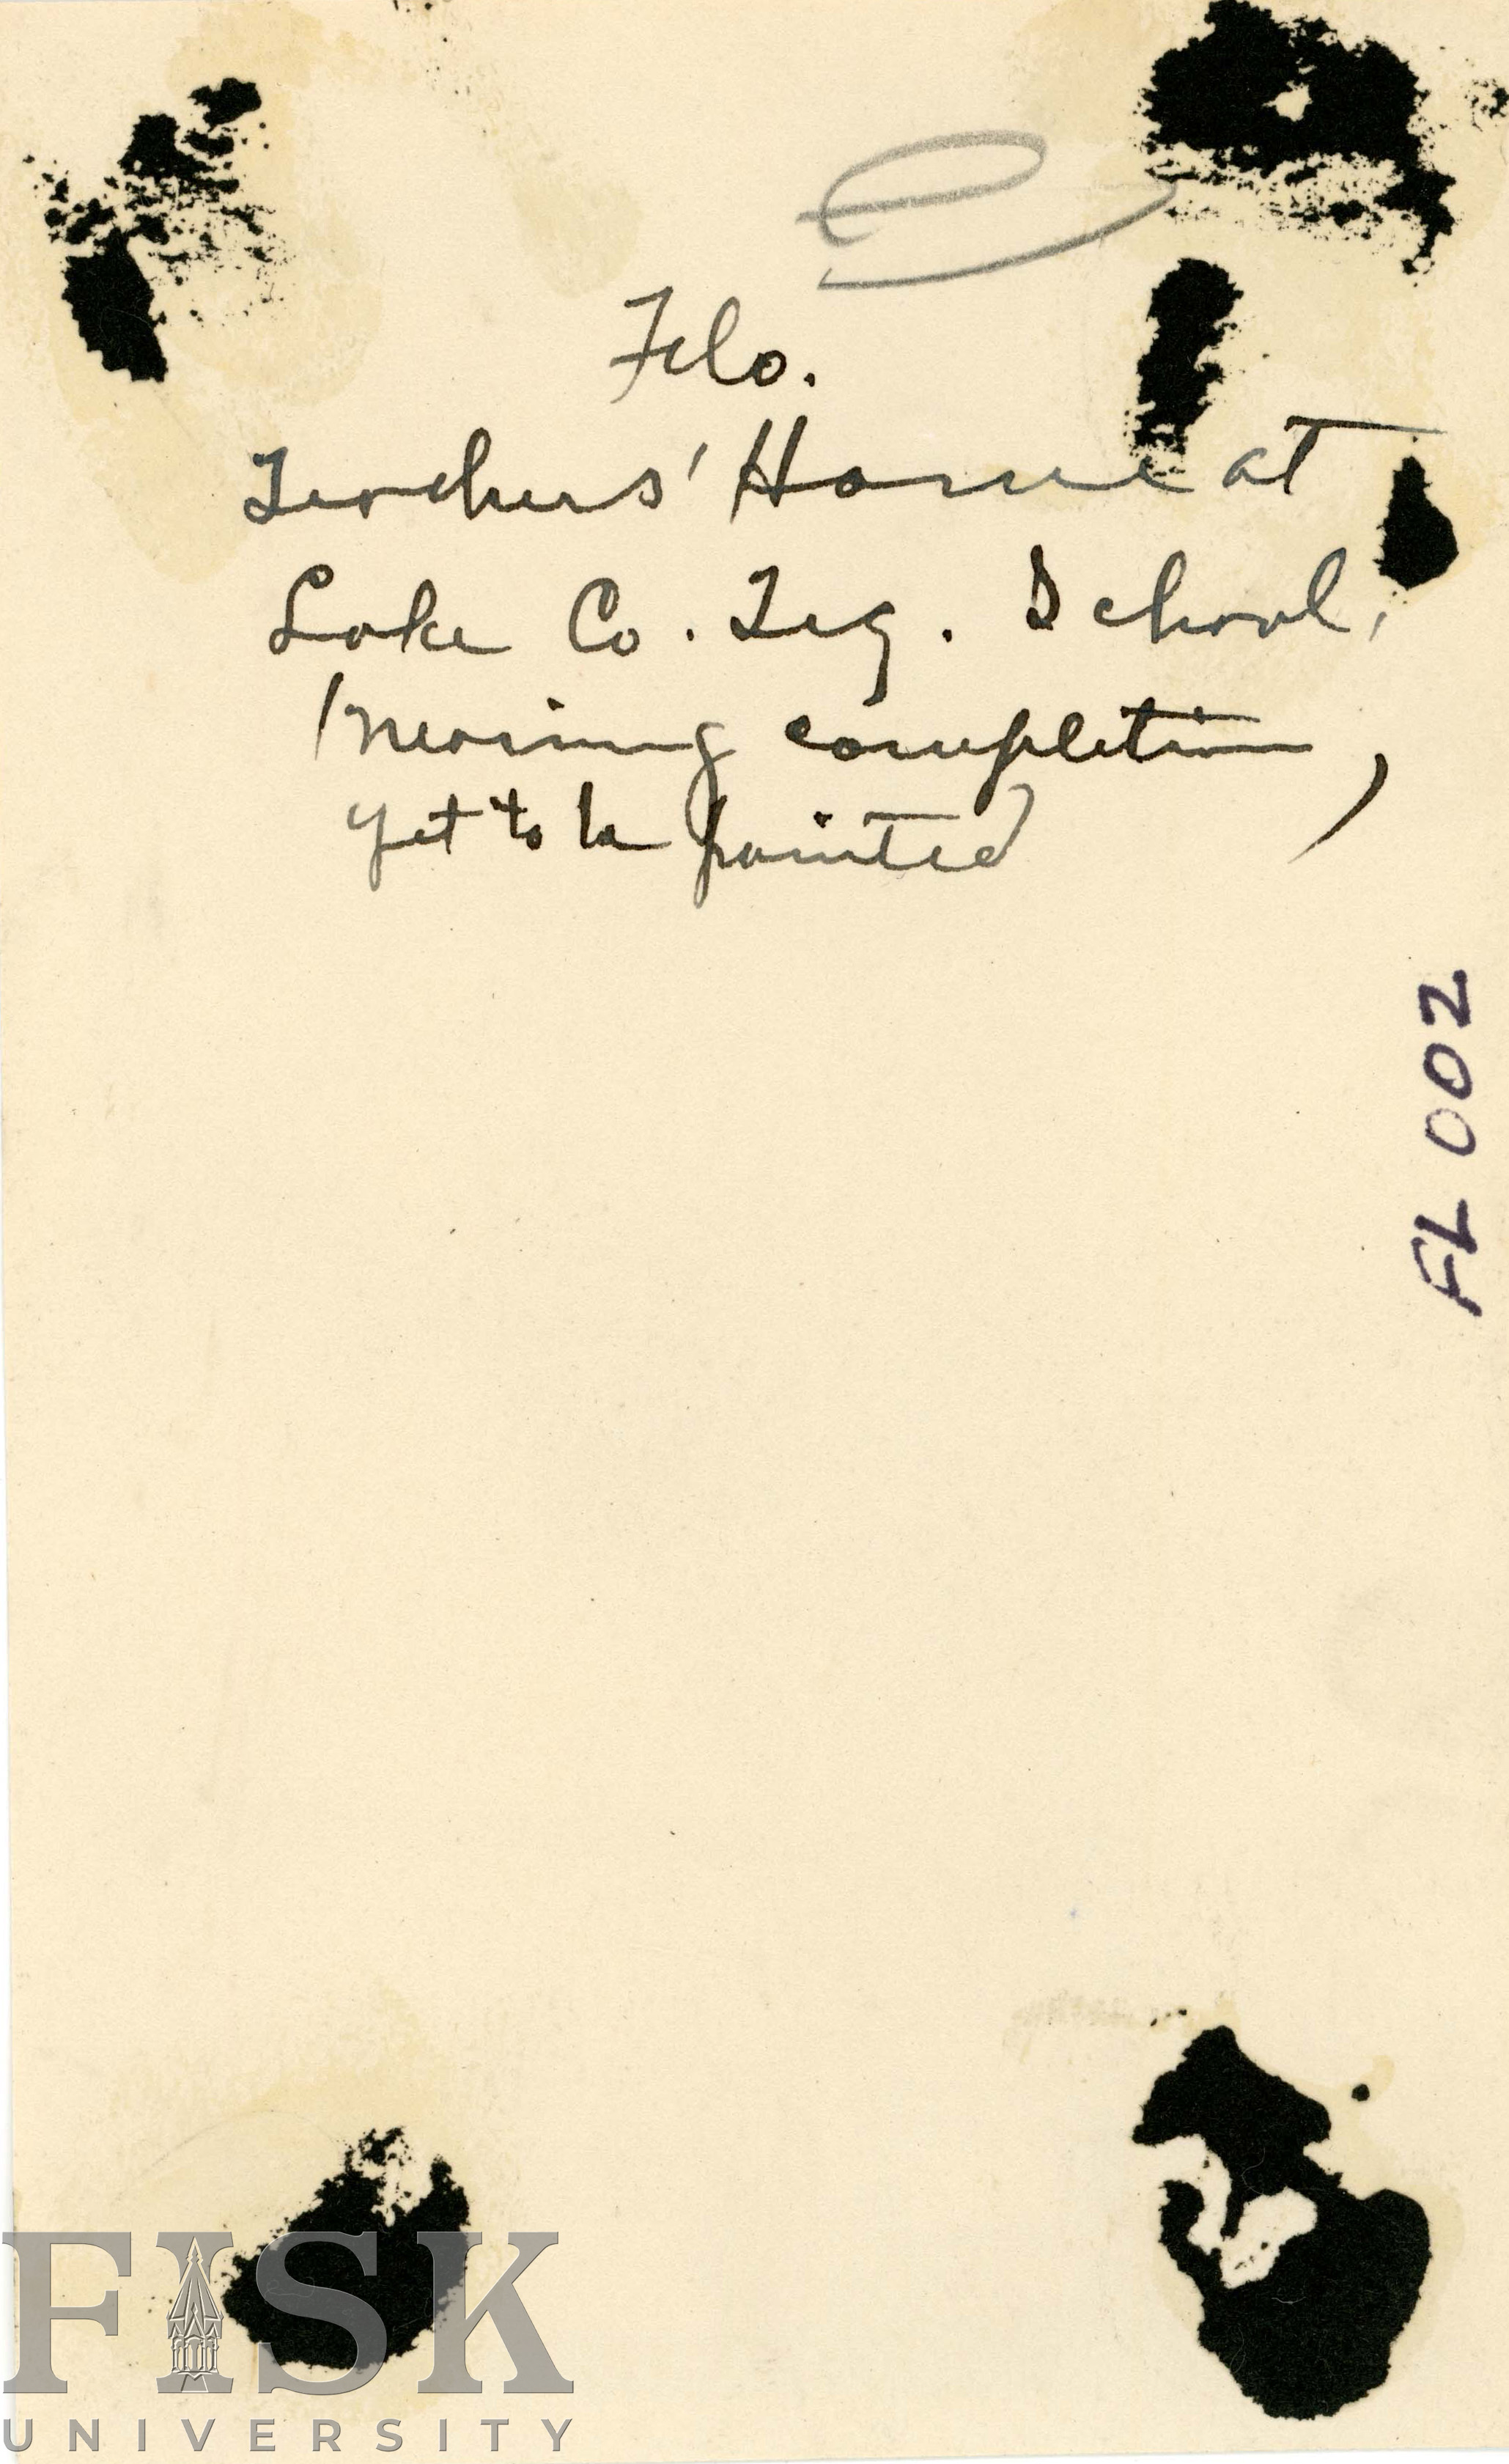 Fla.
Teachers' Home at
Lake Co. Trg. School,
(nearing completion,
yet to be painted)
FL 002
FISK
UNIVERSITY